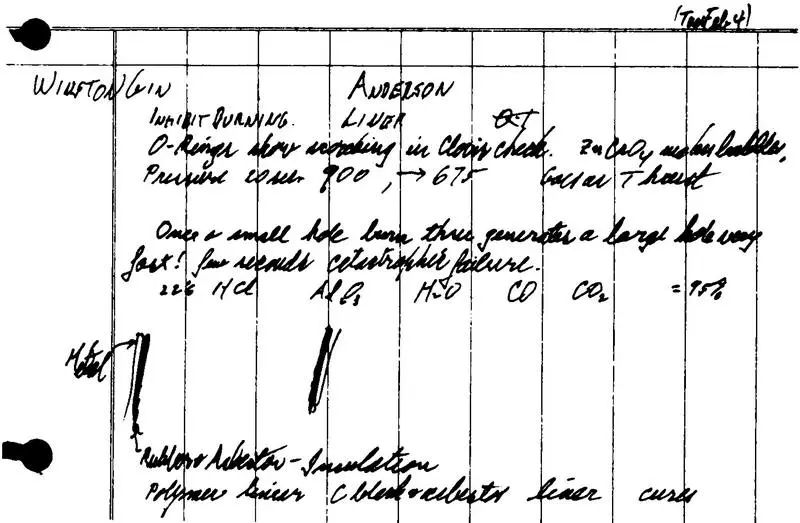 (Tues Feb 4)
WINSTON GIN ANDERSON
INHIBIT BURNING. LINER
O-Rings show scorching in Clevis check. ZnCrO4 makes bubbles.
Pressure 900, → 675 Thrust
Once a small hole burns thru generates a large hole very
fast! few seconds catastrophic failure.
22% HCl H2O CO CO2 = 95%
Metal
Rubber & Asbestos - Insulation
Polymer liner C black & asbestos liner cures